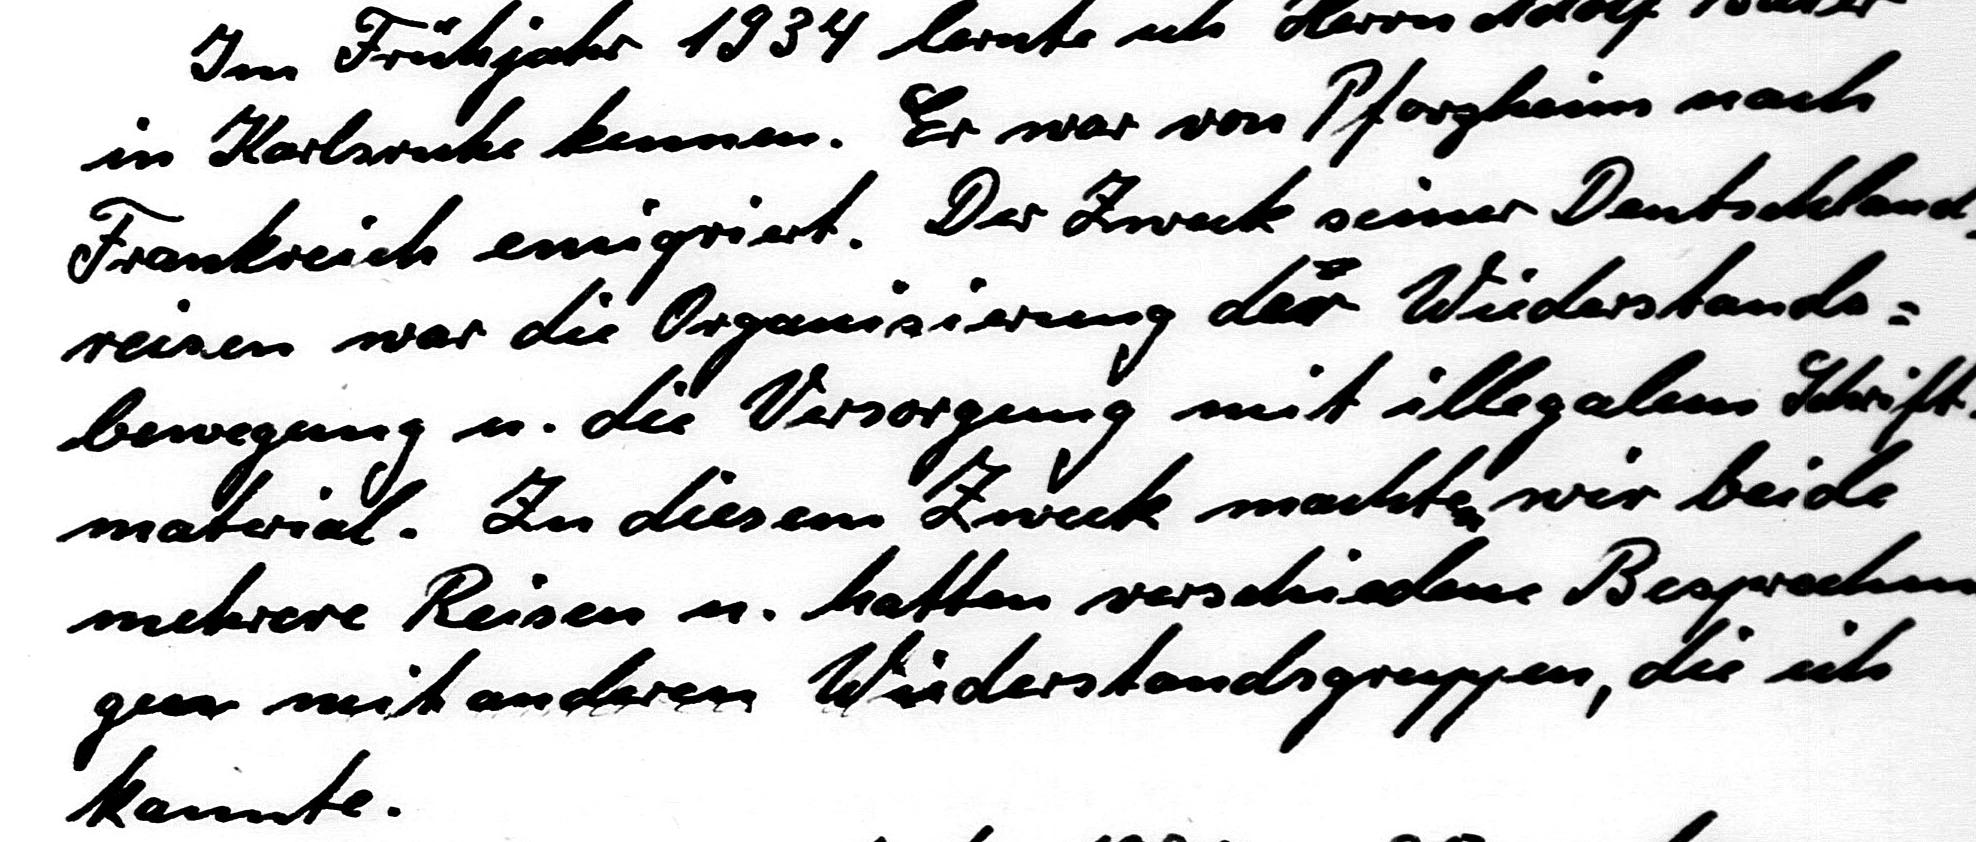 Im Frühjahr 1934 lernte ich Herrn Adolf
in Karlsruhe kennen. Er war von Pforzheim nach
Frankreich emigriert. Der Zweck seiner Deutschland-
reisen war die Organisierung der Wiederstands=
bewegung u. die Versorgung mit illegalem Schrift-
material. Zu diesem Zweck machten wir beide
mehrere Reisen u. hatten verschiedene Besprechun
gen mit anderen Wiederstandsgruppen, die ich
kannte.